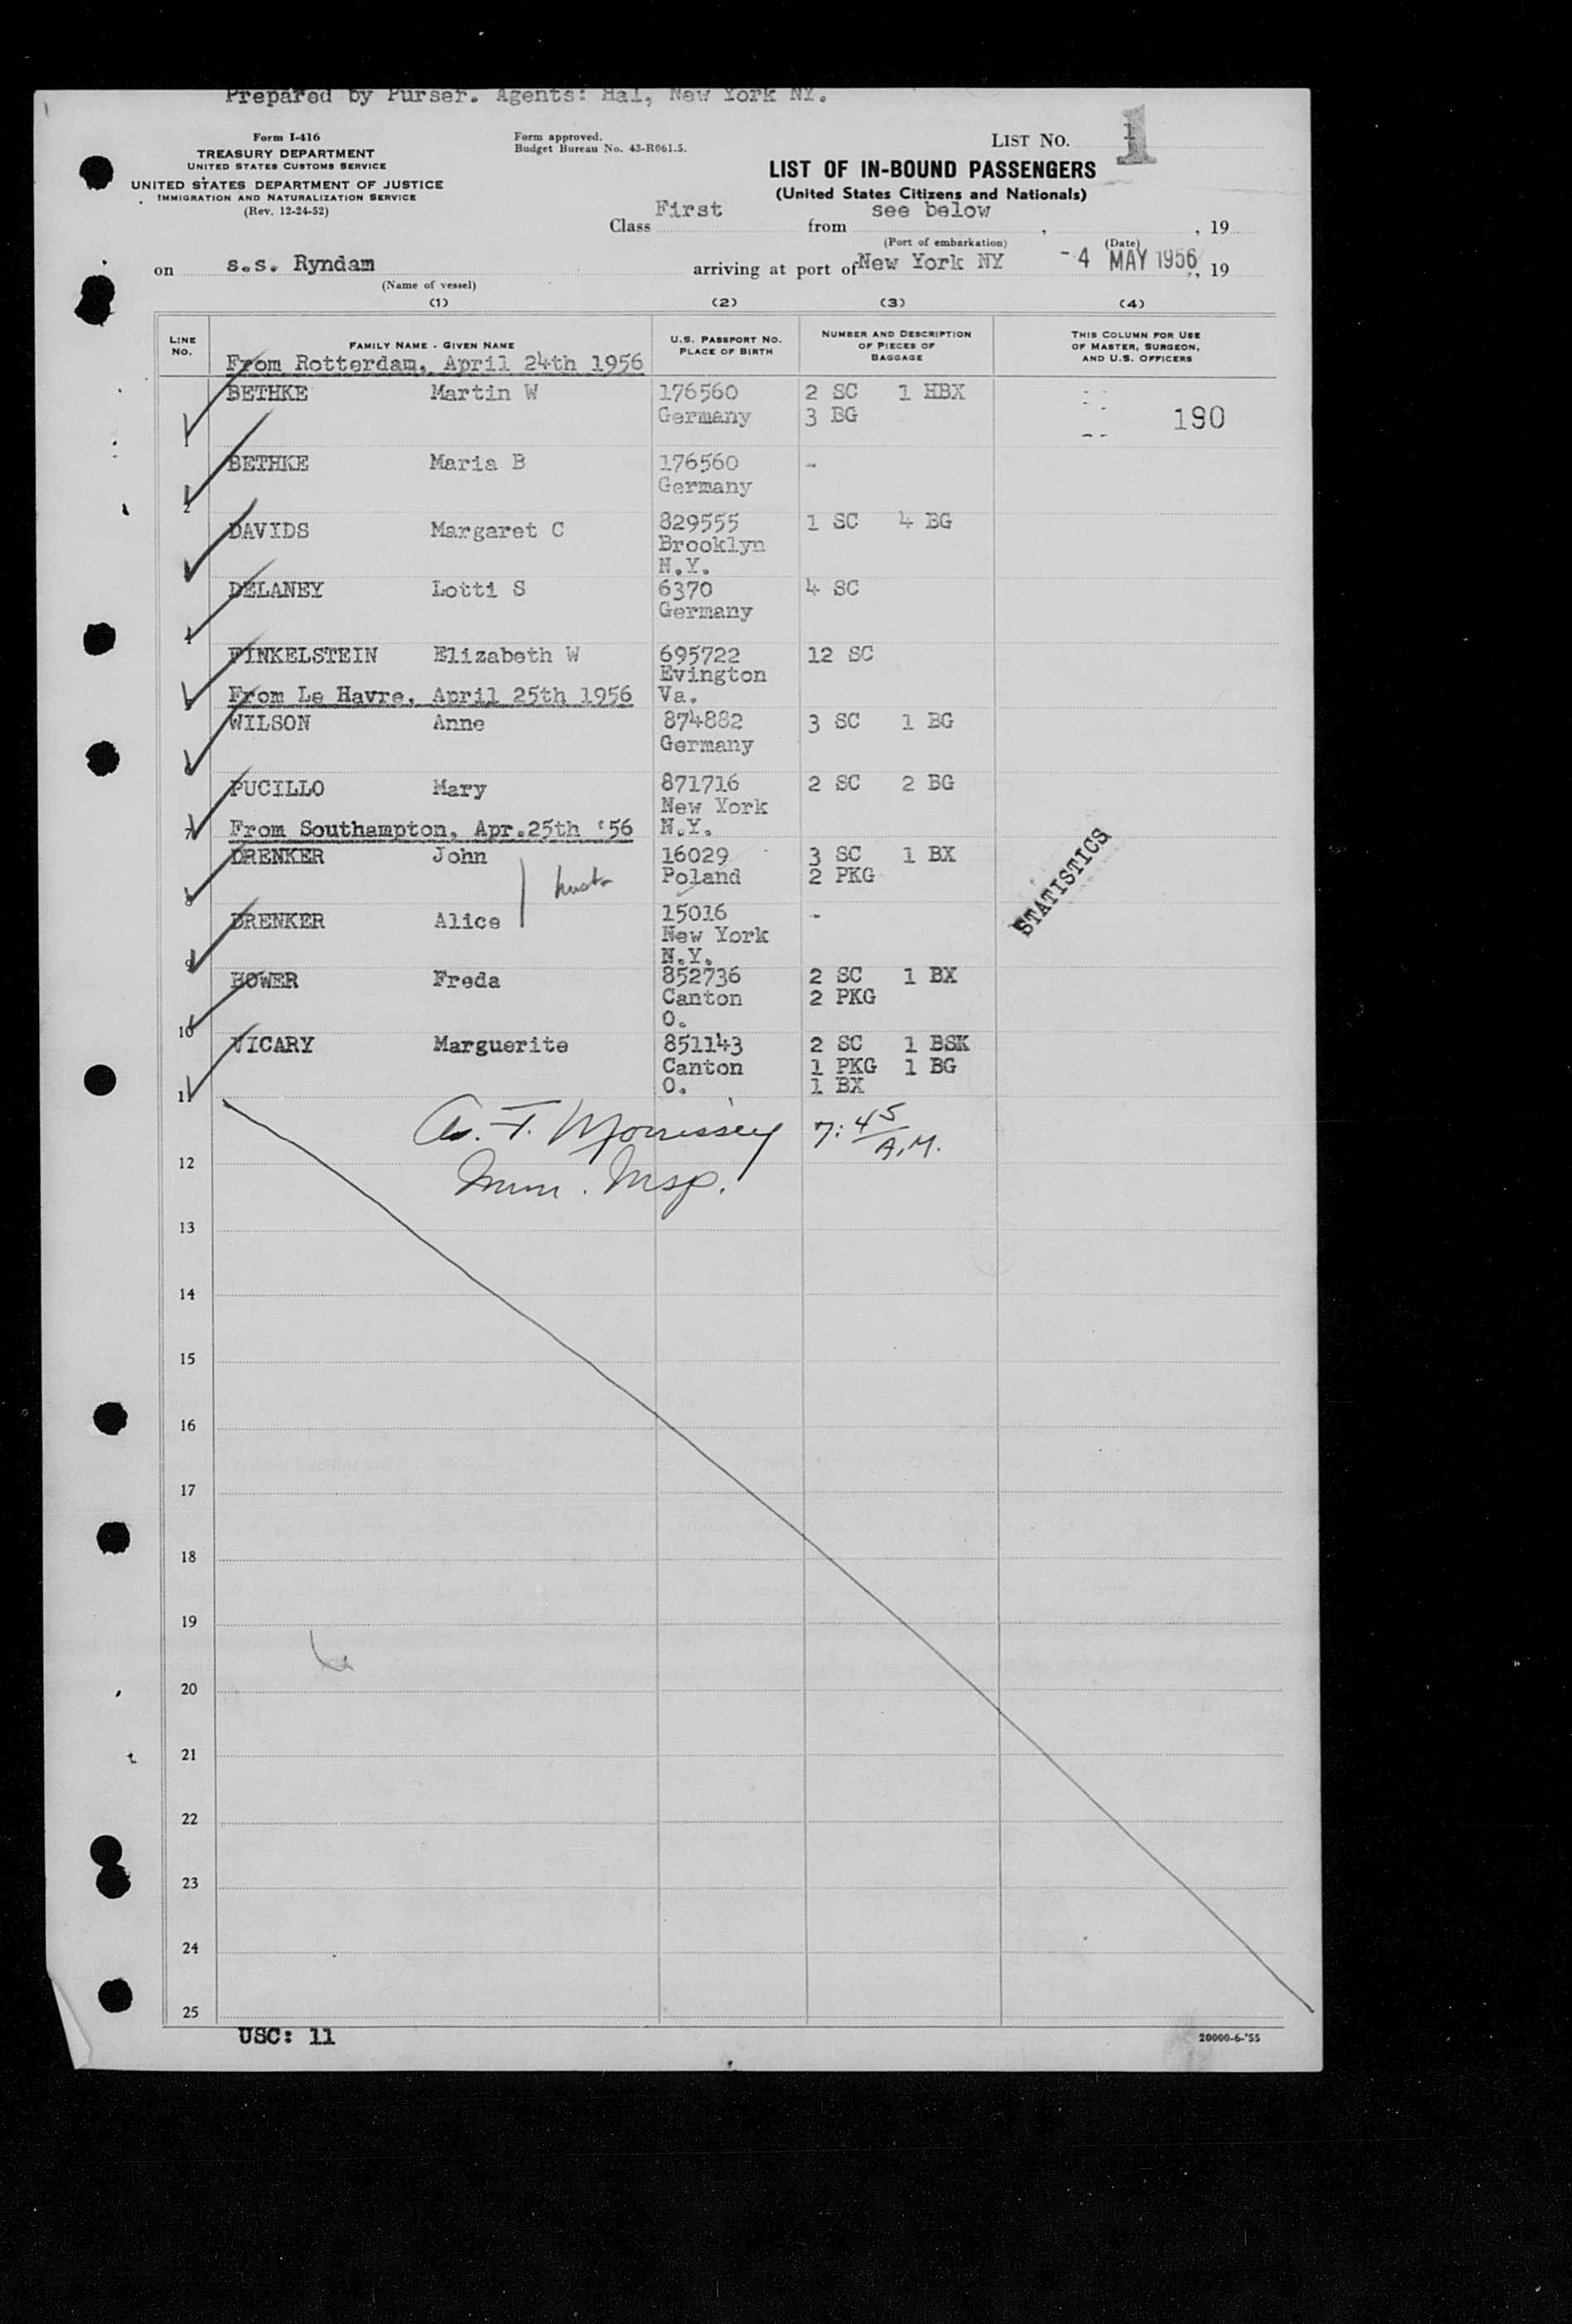 Prepared by Purser. Agents: Hal, New York NY.
Form I-416
TREASURY DEPARTMENT
UNITED STATES CUSTOMS SERVICE
UNITED STATES DEPARTMENT OF JUSTICE
IMMIGRATION AND NATURALIZATION SERVICE
(Rev. 12-24-52)
Form approved.
Budget Bureau No. 43-R061.5.
LIST NO. 1
1
LIST OF IN-BOUND PASSENGERS
(United States Citizens and Nationals)
Class First from see below , , 19
(Port of embarkation) (Date)
on s.s. Ryndam arriving at port of New York NY -4 MAY 1956, 19
(Name of vessel)
(1) (2) (3) (4)
LINE NO. FAMILY NAME - GIVEN NAME U.S. PASSPORT NO. PLACE OF BIRTH NUMBER AND DESCRIPTION OF PIECES OF BAGGAGE THIS COLUMN FOR USE OF MASTER, SURGEON, AND U.S. OFFICERS
From Rotterdam, April 24th 1956
BETHKE Martin W 176560 2 SC 1 HBX
1 Germany 3 BG 190
BETHKE Maria B 176560 -
2 Germany
DAVIDS Margaret C 829555 1 SC 4 BG
Brooklyn
N.Y.
DELANEY Lotti S 6370 4 SC
4 Germany
FINKELSTEIN Elizabeth W 695722 12 SC
Evington
From Le Havre, April 25th 1956 Va.
WILSON Anne 874882 3 SC 1 BG
Germany
PUCILLO Mary 871716 2 SC 2 BG
New York
7 From Southampton, Apr.25th '56 N.Y.
DRENKER John 16029 3 SC 1 BX
8 Poland 2 PKG
DRENKER Alice 15016 -
New York
9 N.Y.
BOWER Freda 852736 2 SC 1 BX
Canton 2 PKG
10 O.
VICARY Marguerite 851143 2 SC 1 BSK
Canton 1 PKG 1 BG
11 O. 1 BX
STATISTICS
Morrissey 7:45 A.M.
12 Imm. Insp.
13
14
15
16
17
18
19
20
21
22
23
24
25
USC: 11
20000-6-'55